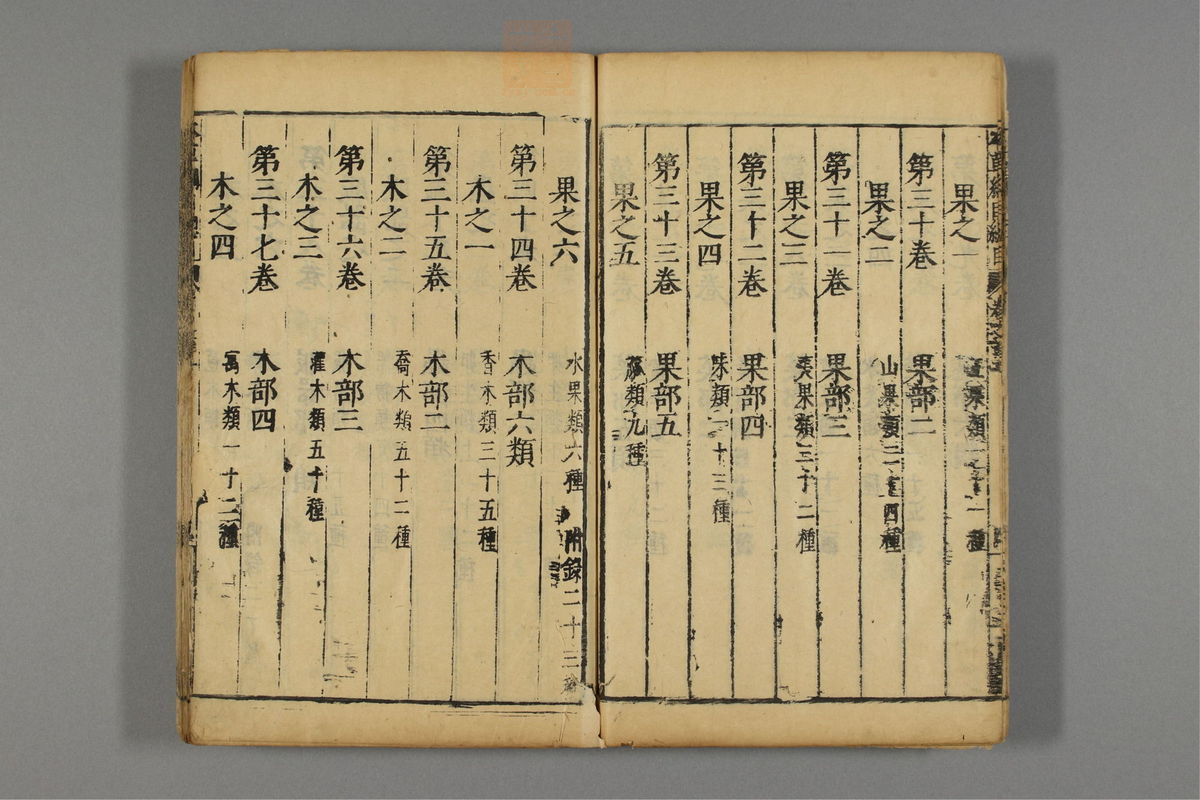 果之一
果類一十一種
第三十卷 果部二
果之二
山果類三十四種
第三十一卷 果部三
果之三
夷果類三十二種
第三十二卷 果部四
果之四
味類一十三種
第三十三卷 果部五
果之五
蓏類九種
果之六
水果類六種 附錄二十三種
第三十四卷 木部六類
木之一
香木類三十五種
第三十五卷 木部二
木之二
喬木類五十二種
第三十六卷 木部三
木之三
灌木類五十種
第三十七卷 木部四
木之四
寓木類一十二種